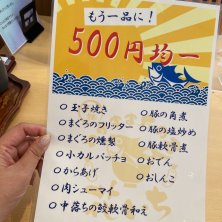 もう一品に！
500円均一
○ 玉子焼き
○ まぐろのフリッター
○ まぐろの燻製
○ 小カルパッチョ
○ からあげ
○ 肉シューマイ
○ 中落ちの鮫軟骨和え
○ 豚の角煮
○ 豚の塩炒め
○ 豚軟骨煮
○ おでん
○ おしんこ